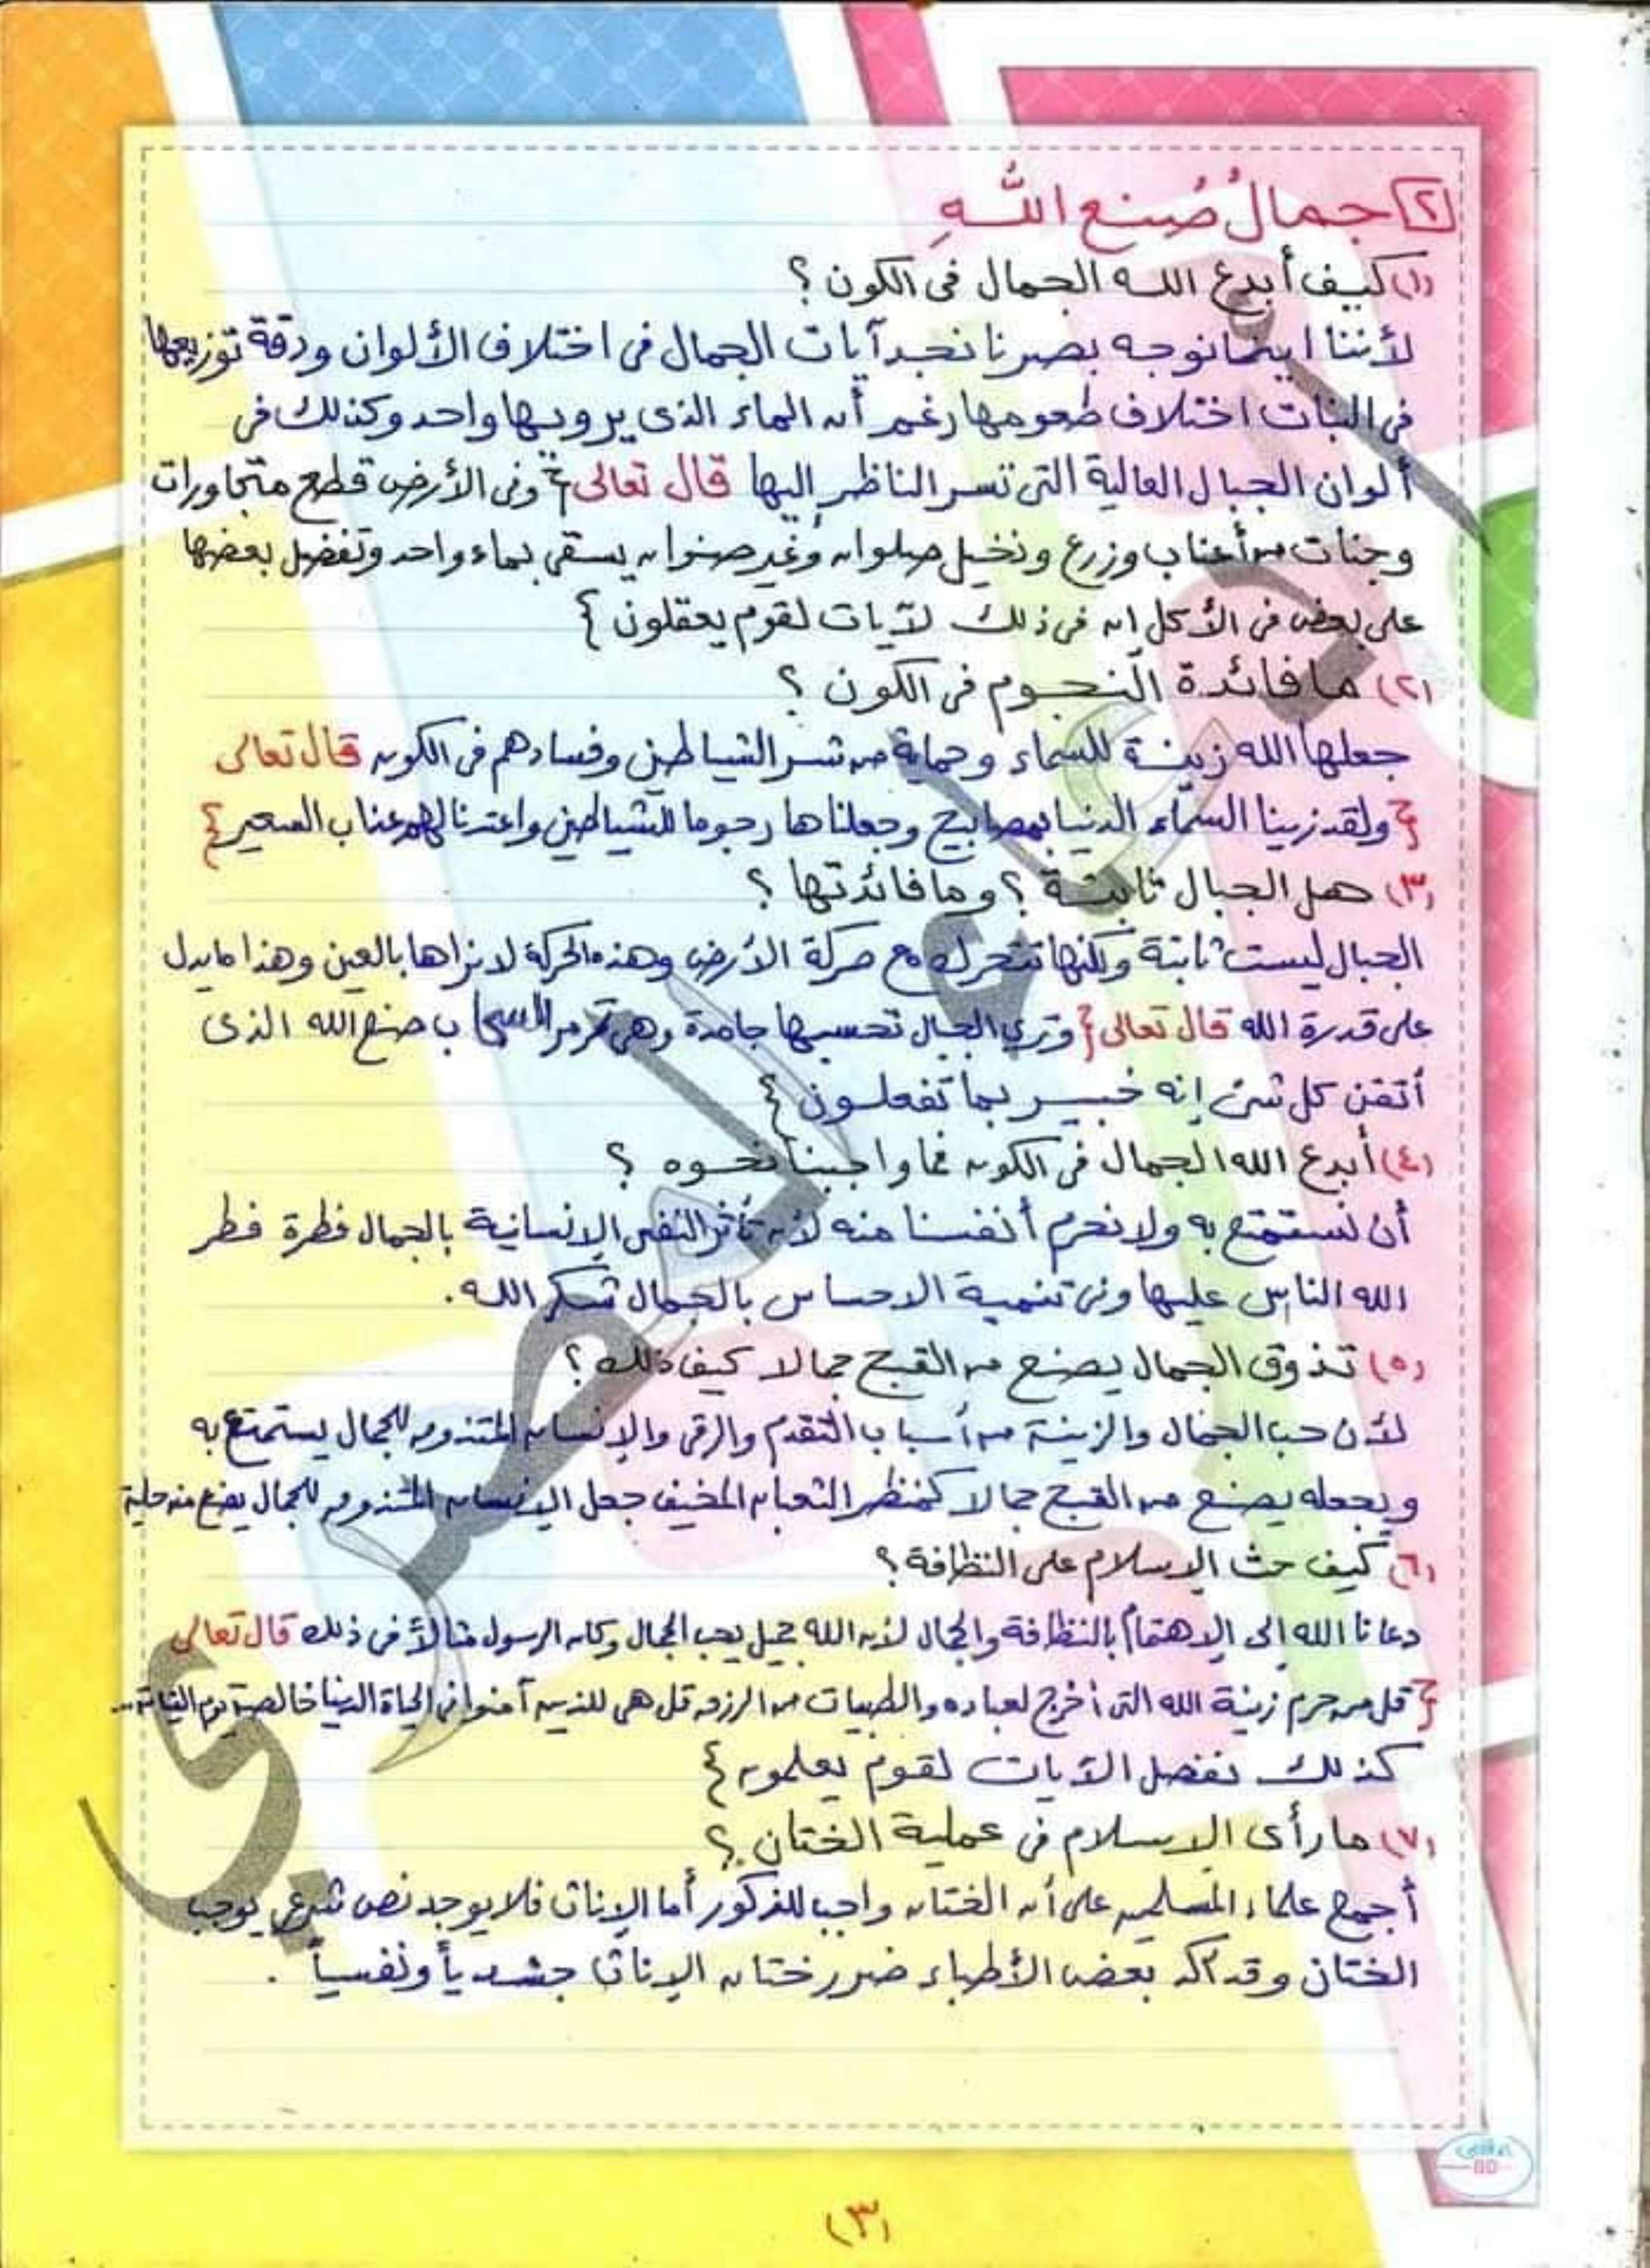 [٢] جمالُ صُنع اللَّهِ
(١) كيف أبدع الله الجمال فى الكون ؟
لأننا اينما نوجه بصرنا نجد آيات الجمال فى اختلاف الألوان ودقة توزيعها
فى النبات اختلاف طعومها رغم أن الماء الذى يرويها واحد وكذلك فى
ألوان الجبال العالية التى تسر الناظر إليها قال تعالى { وفى الأرض قطع متجاورات
وجنات من أعناب وزرع ونخيل صلوان وغير صنوان يسقى بماء واحد وتفضل بعضها
على بعض فى الأكل إن فى ذلك لآيات لقوم يعقلون }
(٢) ما فائدة النجوم فى الكون ؟
جعلها الله زينة للسماء وحماية من شر الشياطين وفسادهم فى الكون قال تعالى
{ ولقد زينا السماء الدنيا بمصابيح وجعلناها رجوما للشياطين واعتدنا لهم عذاب السعير }
(٣) هل الجبال ثابتة ؟ وما فائدتها ؟
الجبال ليست ثابتة ولكنها تتحرك مع حركة الأرض وهذه الحركة لا نراها بالعين وهذا ما يدل
على قدرة الله قال تعالى { وترى الجبال تحسبها جامدة وهى تمر مر السحاب صنع الله الذى
أتقن كل شئ إنه خبير بما تفعلون }
(٤) أبدع الله الجمال فى الكون فما واجبنا نحوه ؟
أن نستمتع به ولا نحرم أنفسنا منه لأن تأثر النفس الإنسانية بالجمال فطرة فطر
الله الناس عليها وفى تنمية الاحساس بالجمال شكر الله .
(٥) تذوق الجمال يصنع من القبح جمالا كيف ذلك ؟
لأن حب الجمال والزينة من أسباب التقدم والرقى والإنسان المتذوق للجمال يستمتع به
ويجعله يصنع من القبح جمالا كمنظر الثعبان المخيف جعل الإنسان المتذوق للجمال يصنع منه حلية
(٦) كيف حث الإسلام على النظافة ؟
دعانا الله إلى الإهتمام بالنظافة والجمال لأن الله جميل يحب الجمال وكان الرسول مثالاً فى ذلك قال تعالى
{ قل من حرم زينة الله التى أخرج لعباده والطيبات من الرزق قل هى للذين آمنوا فى الحياة الدنيا خالصة يوم القيامة ..
كذلك نفصل الآيات لقوم يعلمون }
(٧) ما رأى الإسلام فى عملية الختان ؟
أجمع علماء المسلمين على أن الختان واجب للذكور أما الإناث فلا يوجد نص شرعى يوجب
الختان وقد أكد بعض الأطباء ضرر ختان الإناث جسدياً ونفسياً .
(٣)